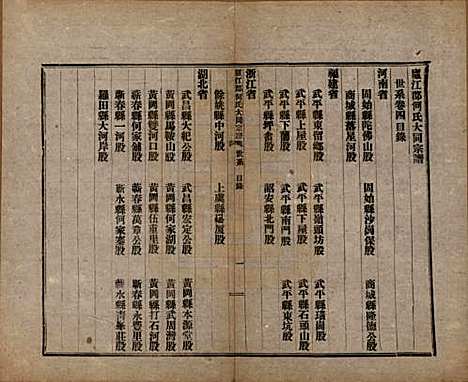 廬江郡何氏大同宗譜
世系卷四目錄
河南省
固始縣陀佛山股 固始縣沙崗保股 商城縣隆德公股
商城縣落星河股
福建省
武平縣東留鄉股 武平縣嶺頭坊股 武平縣
武平縣上屋股 武平縣下屋股 武平縣石頭山股
武平縣下 武平縣南門股 武平縣東坑股
武平縣坪 股 詔安縣北門股
浙江省
廬江郡何氏大同宗譜 世系 目錄 一
餘姚縣中河股 上虞縣 股
湖北省
武昌縣大 公股 黃岡縣安定公股 黃岡縣本源堂股
黃岡縣馬鞍山股 黃岡縣何家湖股 黃岡縣武周灣股
黃岡縣雙河口股 黃岡縣伍重里股 黃岡縣打石河股
蘄春縣何家舖股 蘄春縣萬章公股 蘄春縣永豐里股
蘄春縣一河股 蘄水縣何家寨股 蘄水縣 莊股
羅田縣大河岸股